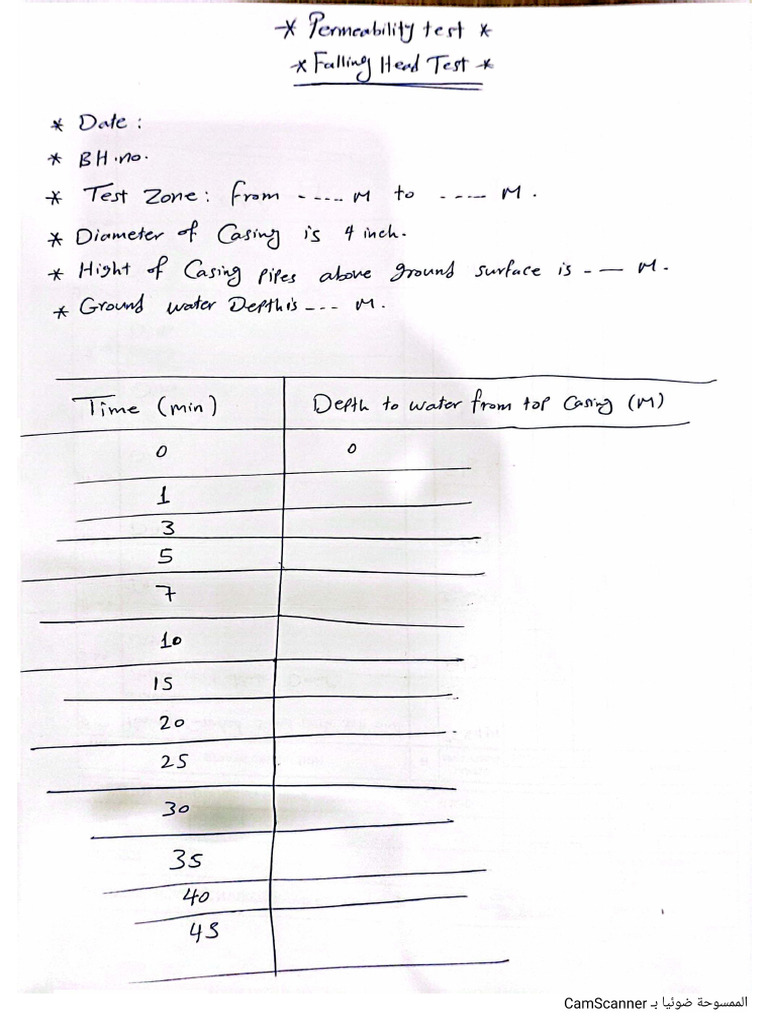 * Permeability test *
* Falling Head Test *
* Date :
* BH.no.
* Test Zone: from ----- M to ----- M.
* Diameter of Casing is 4 inch.
* Hight of Casing Pipes above ground surface is -- — M.
* Ground water Depth is --- M.
Time (min) Depth to water from top Casing (M)
0 0
1
3
5
7
10
15
20
25
30
35
40
45
الممسوحة ضوئيا بـ CamScanner